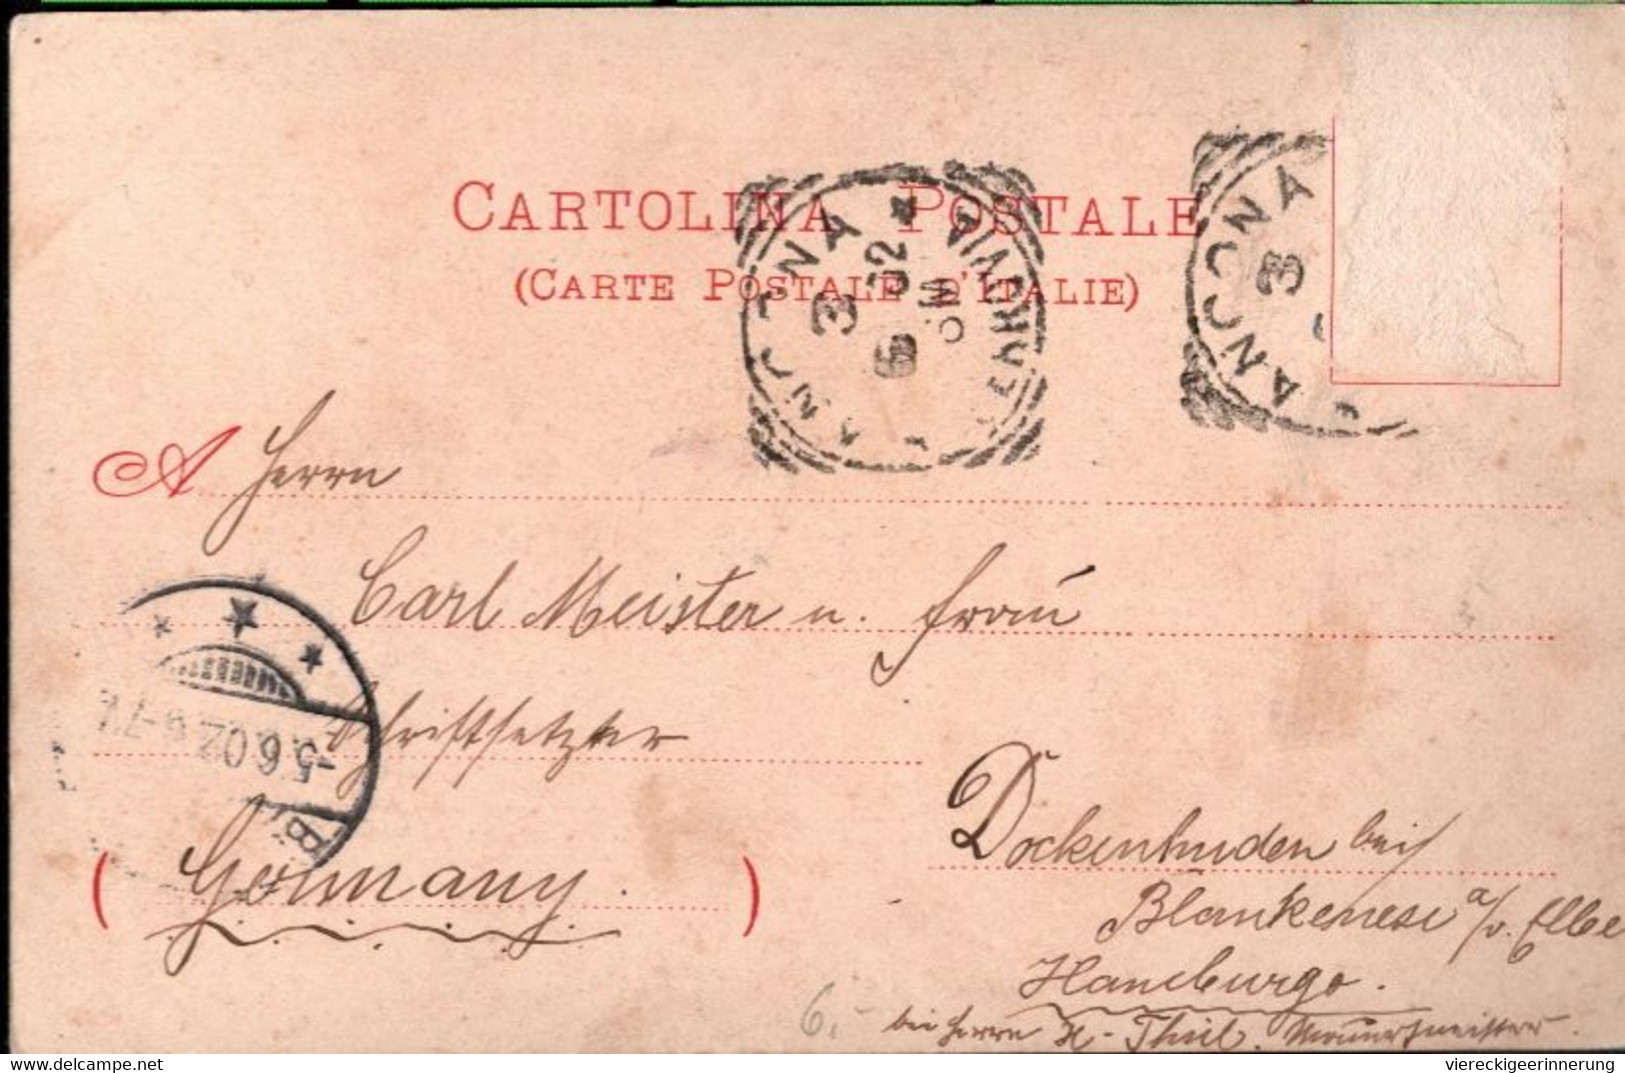 CARTOLINA POSTALE
(CARTE POSTALE D'ITALIE)
ANCONA
3
6 02
FERROVIA
ANCONA
3
A Herrn
Carl Meister u. Frau
Schriftsetzer
Dockenhuden bei
Blankenese a/d. Elbe
Hamburgo.
bei Herrn H. Thiel, Mauermeister.
(Germany.)
-5.6.02. 6-7V.
B
6.-
Delcampe.net
viereckigeerinnerung